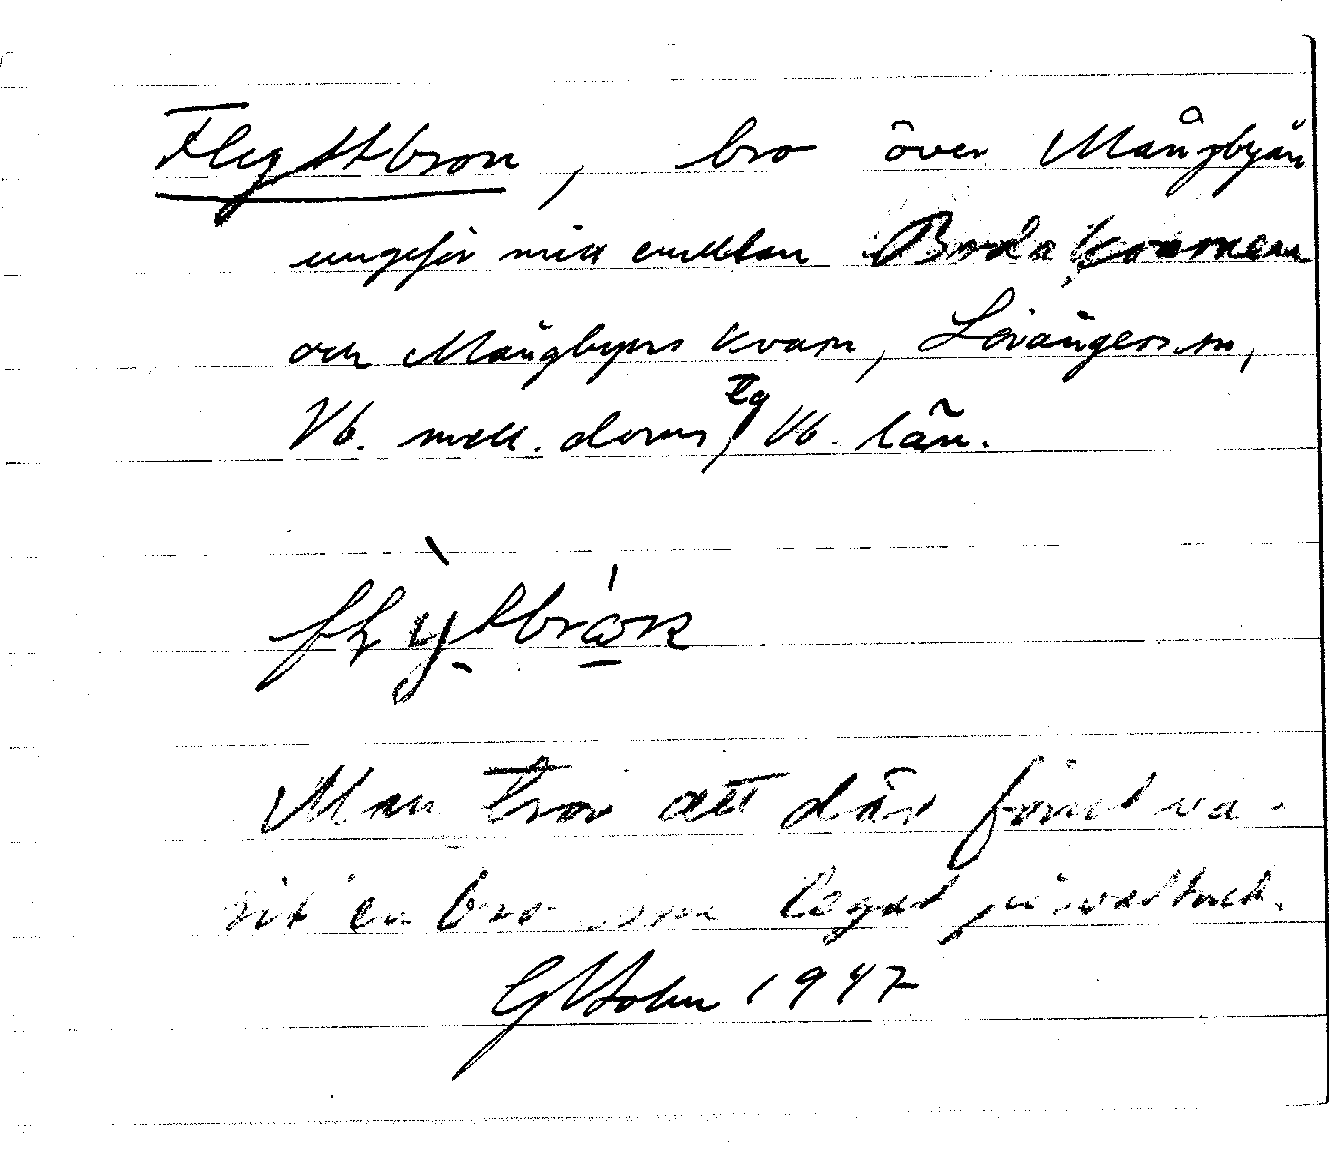 Flyttbron, bro över Mångbyån
ungefär mitt emellan Boda kvarnen
och Mångbyns kvarn, Lövångers sn,
Vb. mell. doms, Vb. län.
flỳtbrón
Man tror att där först va-
rit en bro som legat på vattnet.
1947